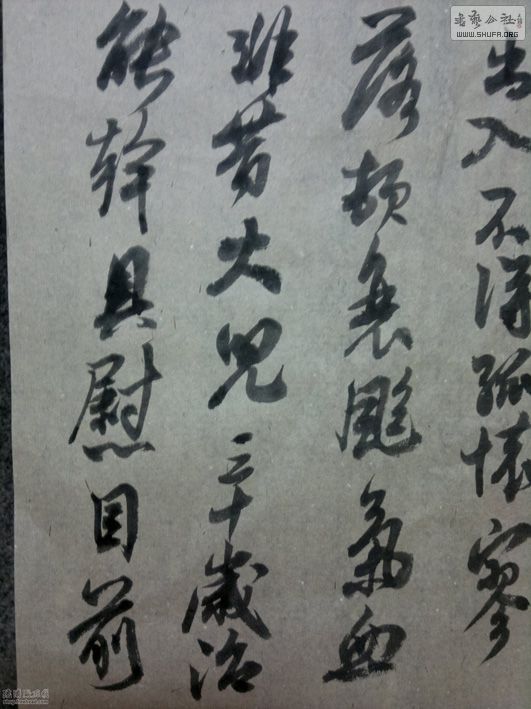 书艺公社
WWW.SHUFA.ORG
出入不得孤懷寥
落頓衰颯氣血
非昔大兒三十歲治
能幹且慰目前